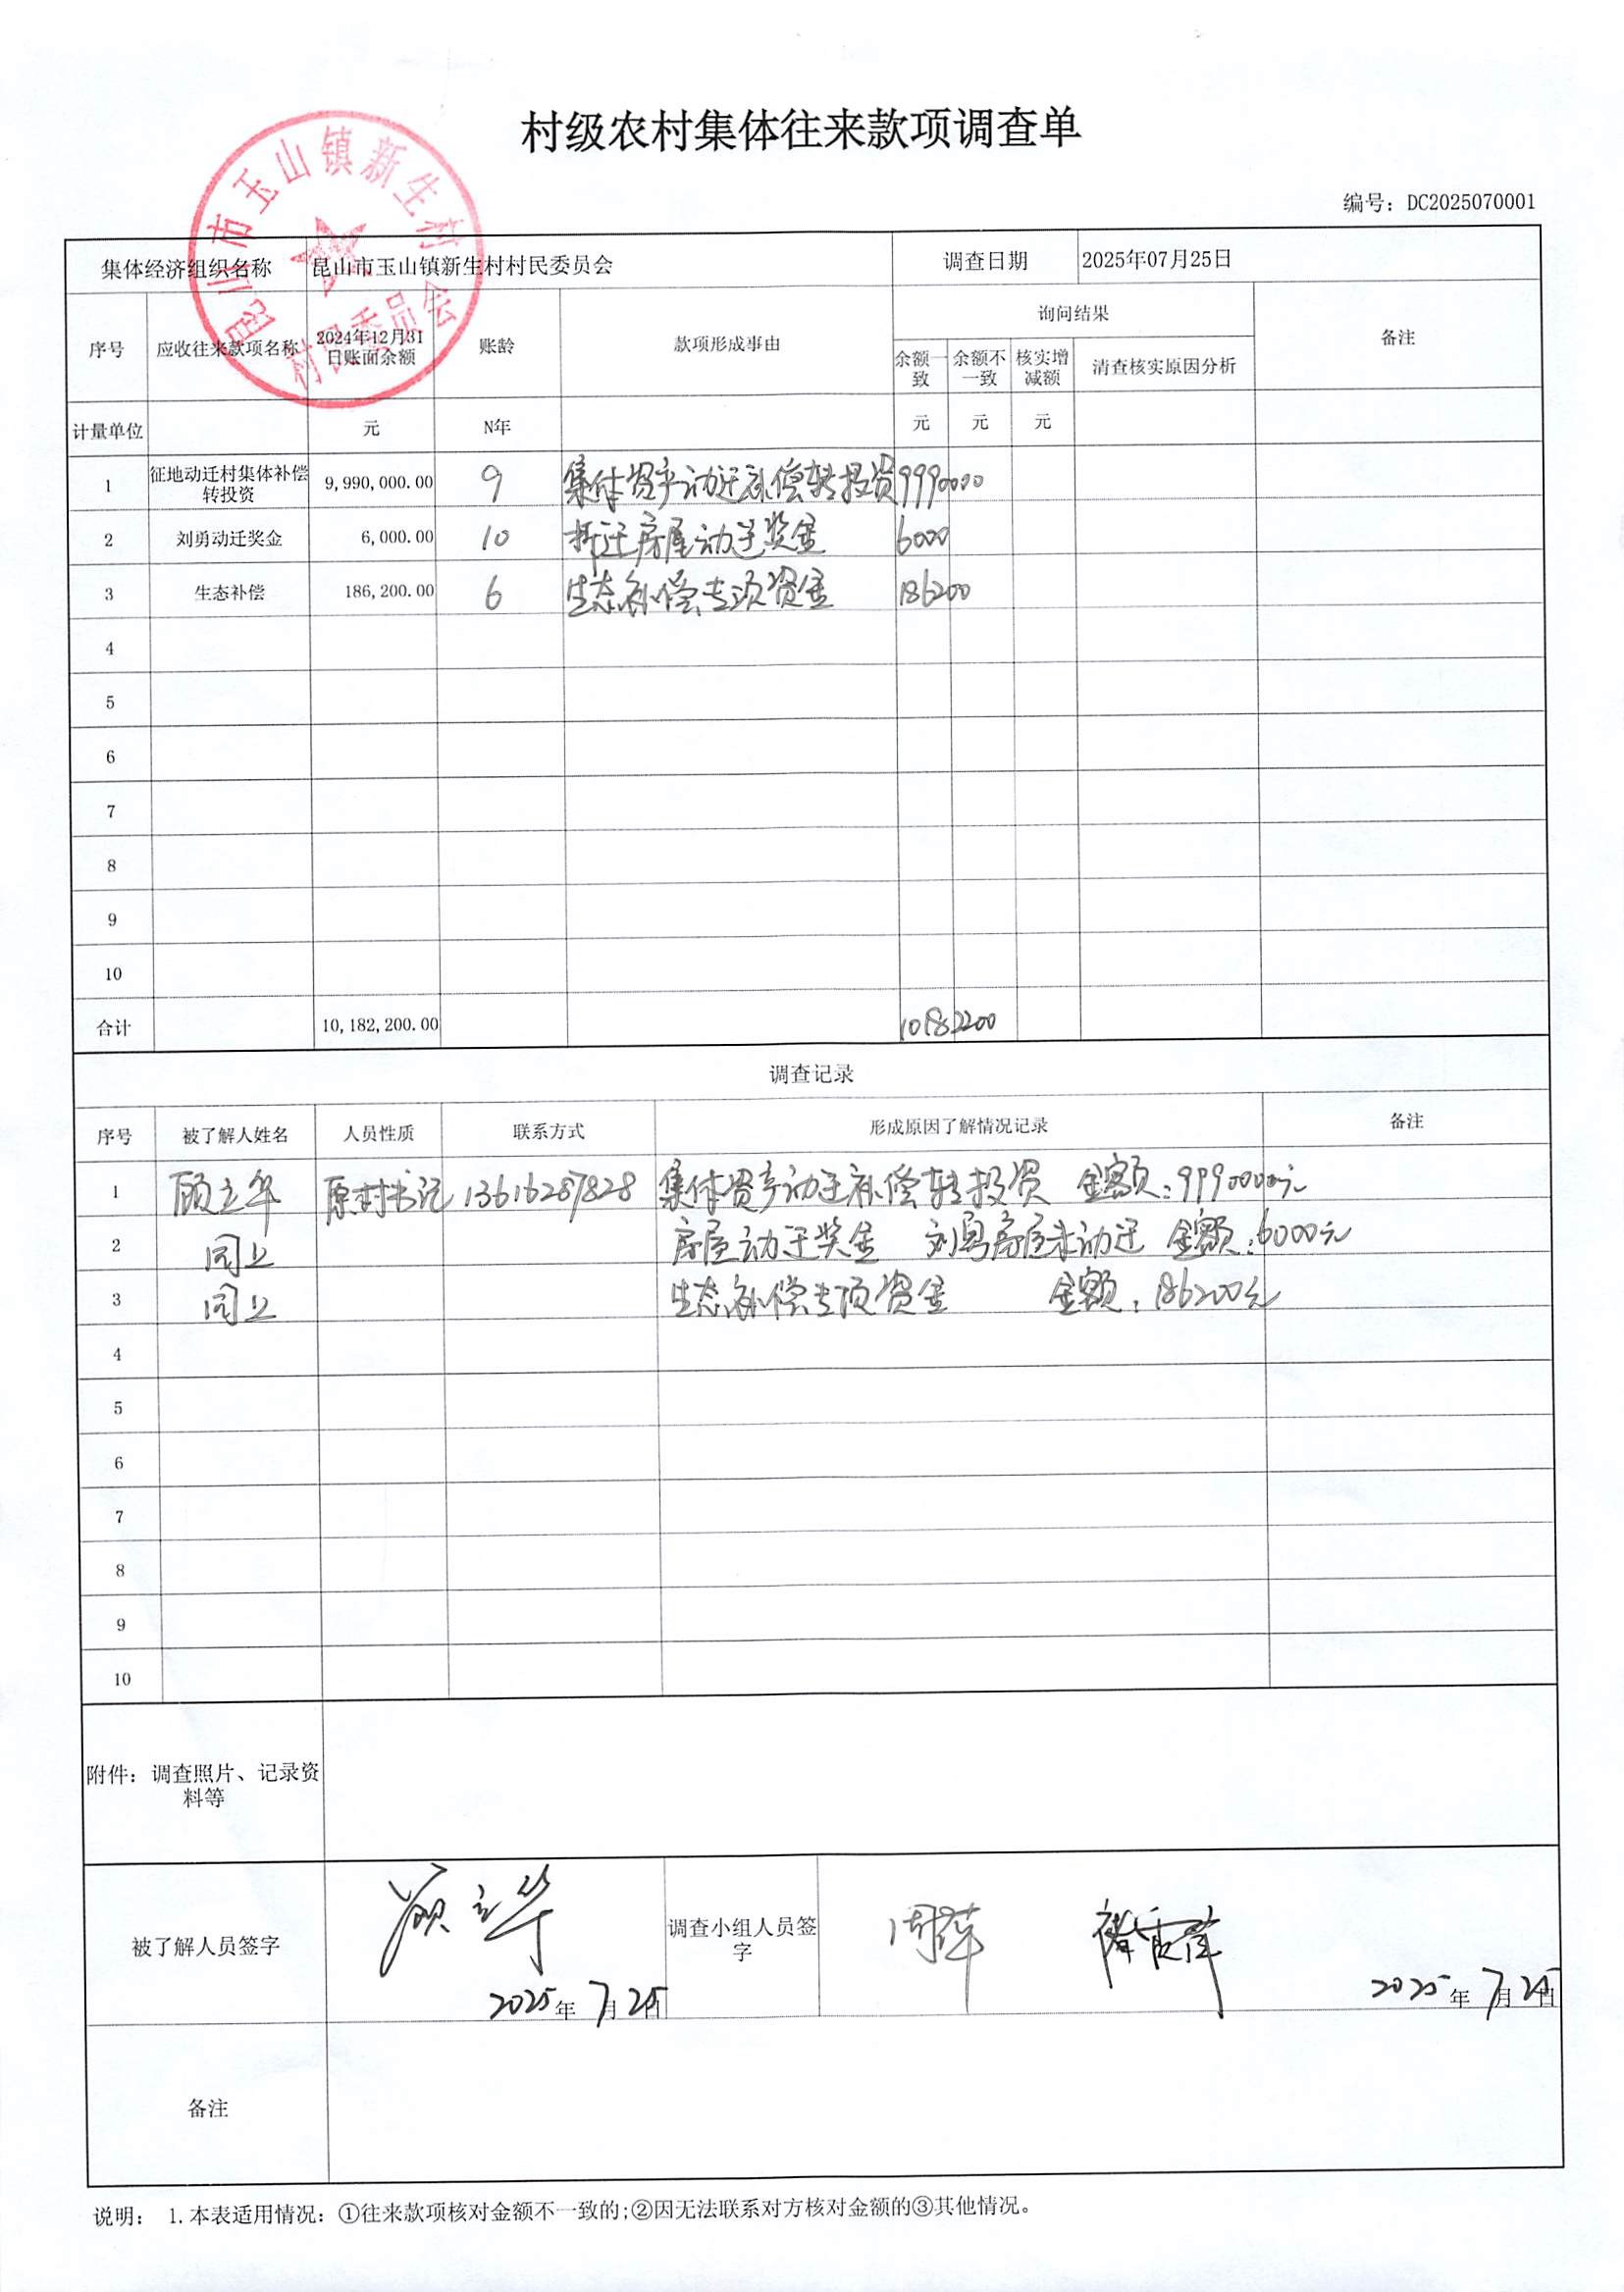 村级农村集体往来款项调查单
编号：DC2025070001
昆山市玉山镇新生村
村民委员会
集体经济组织名称 昆山市玉山镇新生村村民委员会 调查日期 2025年07月25日
序号 应收往来款项名称 2024年12月31日账面余额 账龄 款项形成事由 询问结果 备注
余额一致 余额不一致 核实增减额 清查核实原因分析
计量单位 元 N年 元 元 元
1 征地动迁村集体补偿转投资 9,990,000.00 9 集体资产动迁补偿转投资 9990000
2 刘勇动迁奖金 6,000.00 10 拆迁房屋动迁奖金 6000
3 生态补偿 186,200.00 6 生态补偿专项资金 186200
4
5
6
7
8
9
10
合计 10,182,200.00 10182200
调查记录
序号 被了解人姓名 人员性质 联系方式 形成原因了解情况记录 备注
1 顾立华 原村书记 13616287828 集体资产动迁补偿转投资 金额：9990000元
2 同上 房屋动迁奖金 刘勇房屋未动迁 金额：6000元
3 同上 生态补偿专项资金 金额：186200元
4
5
6
7
8
9
10
附件：调查照片、记录资料等
被了解人员签字 顾立华 2025年7月25日 调查小组人员签字 周萍 2025年7月25日
备注
说明： 1.本表适用情况：①往来款项核对金额不一致的;②因无法联系对方核对金额的③其他情况。